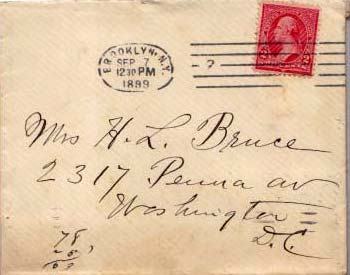 BROOKLYN, N.Y.
SEP 7
1230 PM
1899
7
Mrs H. L. Bruce
2317 Penna av
Washington
D.C.
78